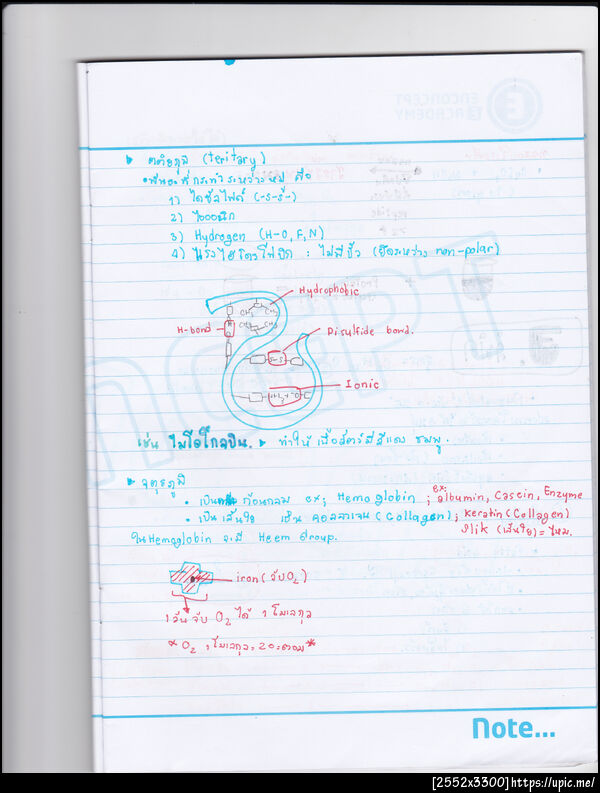 ENCONCEPT
E ACADEMY
ตติยภูมิ (teritary)
พันธะที่กระทำระหว่างหมู่ คือ
1) ไดซัลไฟด์ (-S-S-)
2) ไอออนิก
3) Hydrogen (H-O,F,N)
4) แรงไฮโดรโฟบิก : ไม่มีขั้ว (ยึดระหว่าง non-polar)
Hydrophobic
CH3 CH3
CH3 CH3
H-bond
Disulfide bond.
S-S
Ionic
NH3+ -O
เช่น ไมโอโกลบิน. ทำให้เนื้อสัตว์มีสีแดง ชมพู.
จตุรภูมิ
• เป็น ก้อนกลม ex; Hemoglobin ; ex; albumin, Casein, Enzyme
• เป็นเส้นใย เช่น คอลลาเจน (Collagen) ; Keratin (Collagen)
Slik (เส้นใย) = ไหม.
ใน Hemoglobin จะมี Heem Group.
iron (จับ O2)
1 อัน จับ O2 ได้ 1 โมเลกุล
* O2 1 โมเลกุล = 2 อะตอม *
Note...
[2552x3300] https://upic.me/